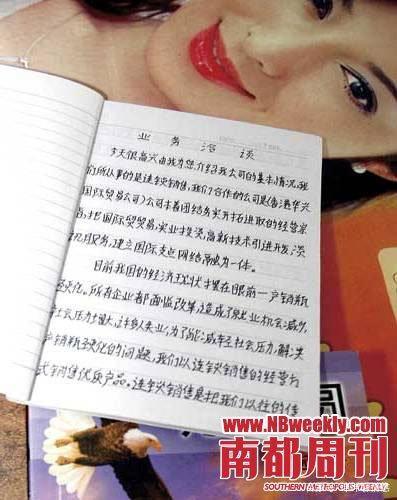 业务洽谈
今天很高兴由我为您介绍我公司的基本情况,我
们所从事的是连锁销售,我们合作的公司是(香港华兴
国际贸易公司)公司本着团结务实开拓进取的经营宗
旨,把国际贸易,实业投资,高新技术引进开发,
服务,建立国际支点网络融为一体。
目前我国的经济现状摆在眼前一产销渐
恶化。所有企业都面临改革,造成了就业机会减少,
社会压力增大,许多人失业,为了能减轻社会压力,解决
产销渐恶化的问题,我们以连锁销售的经营方
式销售优质产品。连锁销售是把我们以往的传
www.NBweekly.com
南都周刊
SOUTHERN METROPOLIS WEEKLY